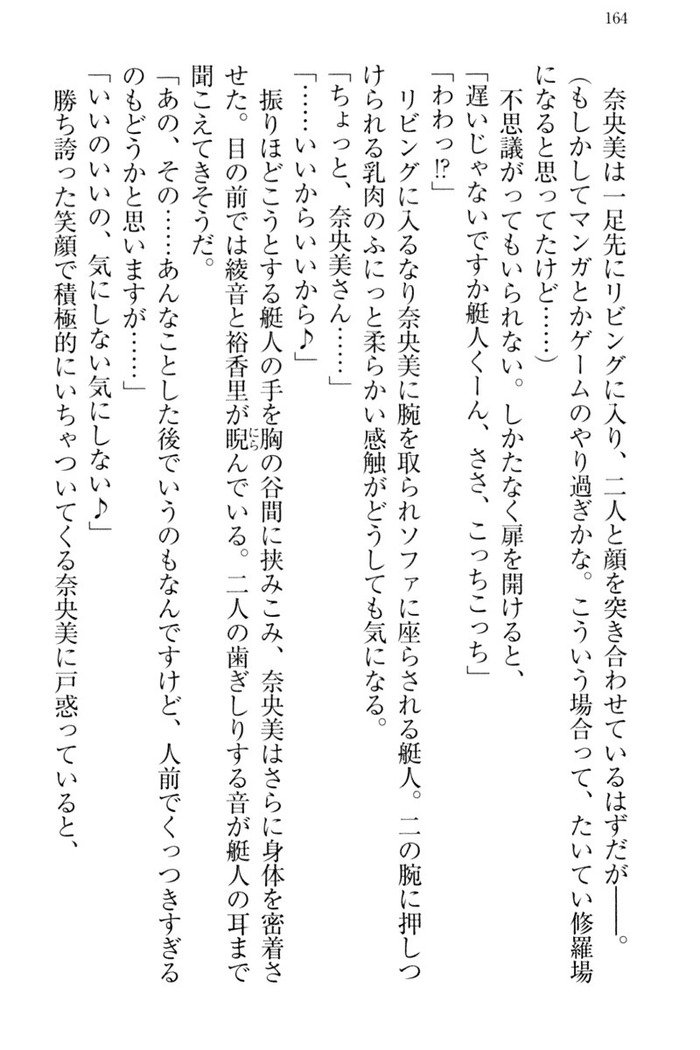 164
奈央美は一足先にリビングに入り、二人と顔を突き合わせているはずだが――。
(もしかしてマンガとかゲームのやり過ぎかな。こういう場合って、たいてい修羅場
になると思ってたけど……)
不思議がってもいられない。しかたなく扉を開けると、
「遅いじゃないですか艇人くーん、ささ、こっちこっち」
「わわっ!?」
リビングに入るなり奈央美に腕を取られソファに座らされる艇人。二の腕に押しつ
けられる乳肉のふにっと柔らかい感触がどうしても気になる。
「ちょっと、奈央美さん……」
「……いいからいいから♪」
振りほどこうとする艇人の手を胸の谷間に挟みこみ、奈央美はさらに身体を密着さ
せた。目の前では綾音と裕香里が睨んでいる。二人の歯ぎしりする音が艇人の耳まで
にら
聞こえてきそうだ。
「あの、その……あんなことした後でいうのもなんですけど、人前でくっつきすぎる
のもどうかと思いますが……」
「いいのいいの、気にしない気にしない♪」
勝ち誇った笑顔で積極的にいちゃついてくる奈央美に戸惑っていると、